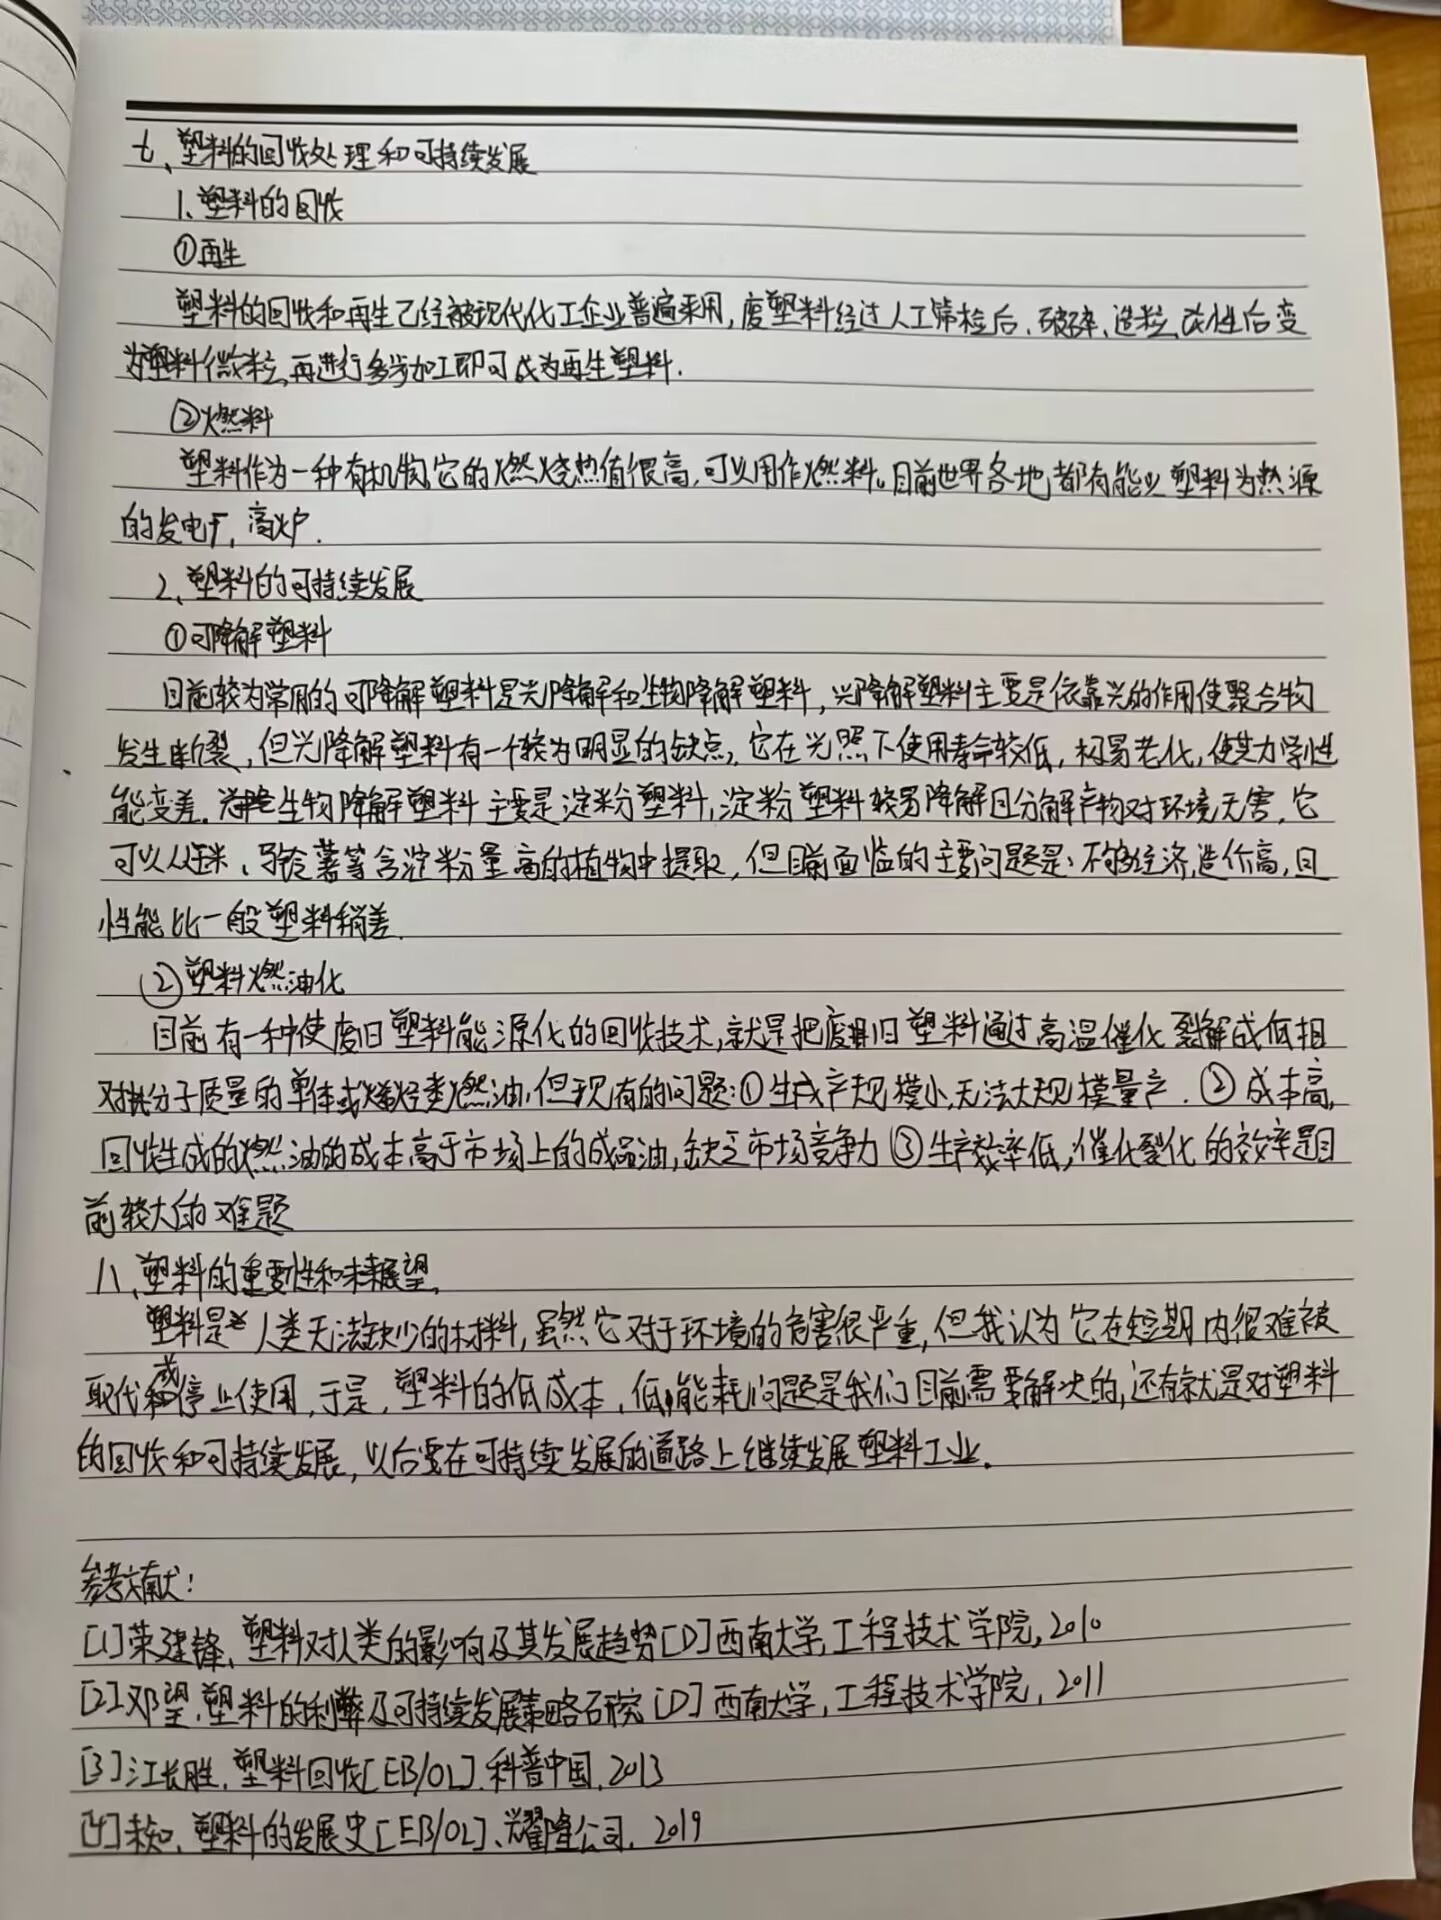 七、塑料的回收处理和可持续发展
1、塑料的回收
①再生
塑料的回收和再生已经被现代化工企业普遍采用,废塑料经过人工筛检后、破碎、造粒、改性后变
为塑料微粒,再进行多步加工即可成为再生塑料.
②燃料
塑料作为一种有机物,它的燃烧热值很高,可以用作燃料。目前世界各地都有能以塑料为热源
的发电厂,高炉.
2、塑料的可持续发展
①可降解塑料
目前较为常用的可降解塑料是光降解和生物降解塑料,光降解塑料主要是依靠光的作用使聚合物
发生断裂,但光降解塑料有一个较为明显的缺点,它在光照下使用寿命较低,极易老化,使其力学性
能变差.生物降解塑料主要是淀粉塑料,淀粉塑料较易降解且分解产物对环境无害,它
可以从玉米、马铃薯等含淀粉量高的植物中提取,但目前面临的主要问题是:不够经济,造价高,且
性能比一般塑料稍差.
②塑料燃油化
目前有一种使废旧塑料能源化的回收技术,就是把废旧塑料通过高温催化裂解成低相
对分子质量的单体或烃类燃油,但现有的问题:①生产规模小,无法大规模量产.②成本高,
回收生成的燃油的成本高于市场上的成品油,缺乏市场竞争力③生产效率低,催化裂化的效率是目
前较大的难题
八、塑料的重要性和未来展望.
塑料是人类无法缺少的材料,虽然它对于环境的危害很严重,但我认为它在短期内很难被
取代或停止使用,于是,塑料的低成本,低能耗问题是我们目前需要解决的,还有就是对塑料
的回收和可持续发展,以后要在可持续发展的道路上继续发展塑料工业.
参考文献:
[1]荣建锋、塑料对人类的影响及其发展趋势[D]西南大学,工程技术学院,2010
[2]邓望.塑料的利弊及可持续发展策略研究[D]西南大学,工程技术学院,2011
[3]江长胜.塑料回收[EB/OL].科普中国.2013
[4]未知.塑料的发展史[EB/OL].耀隆公司.2019